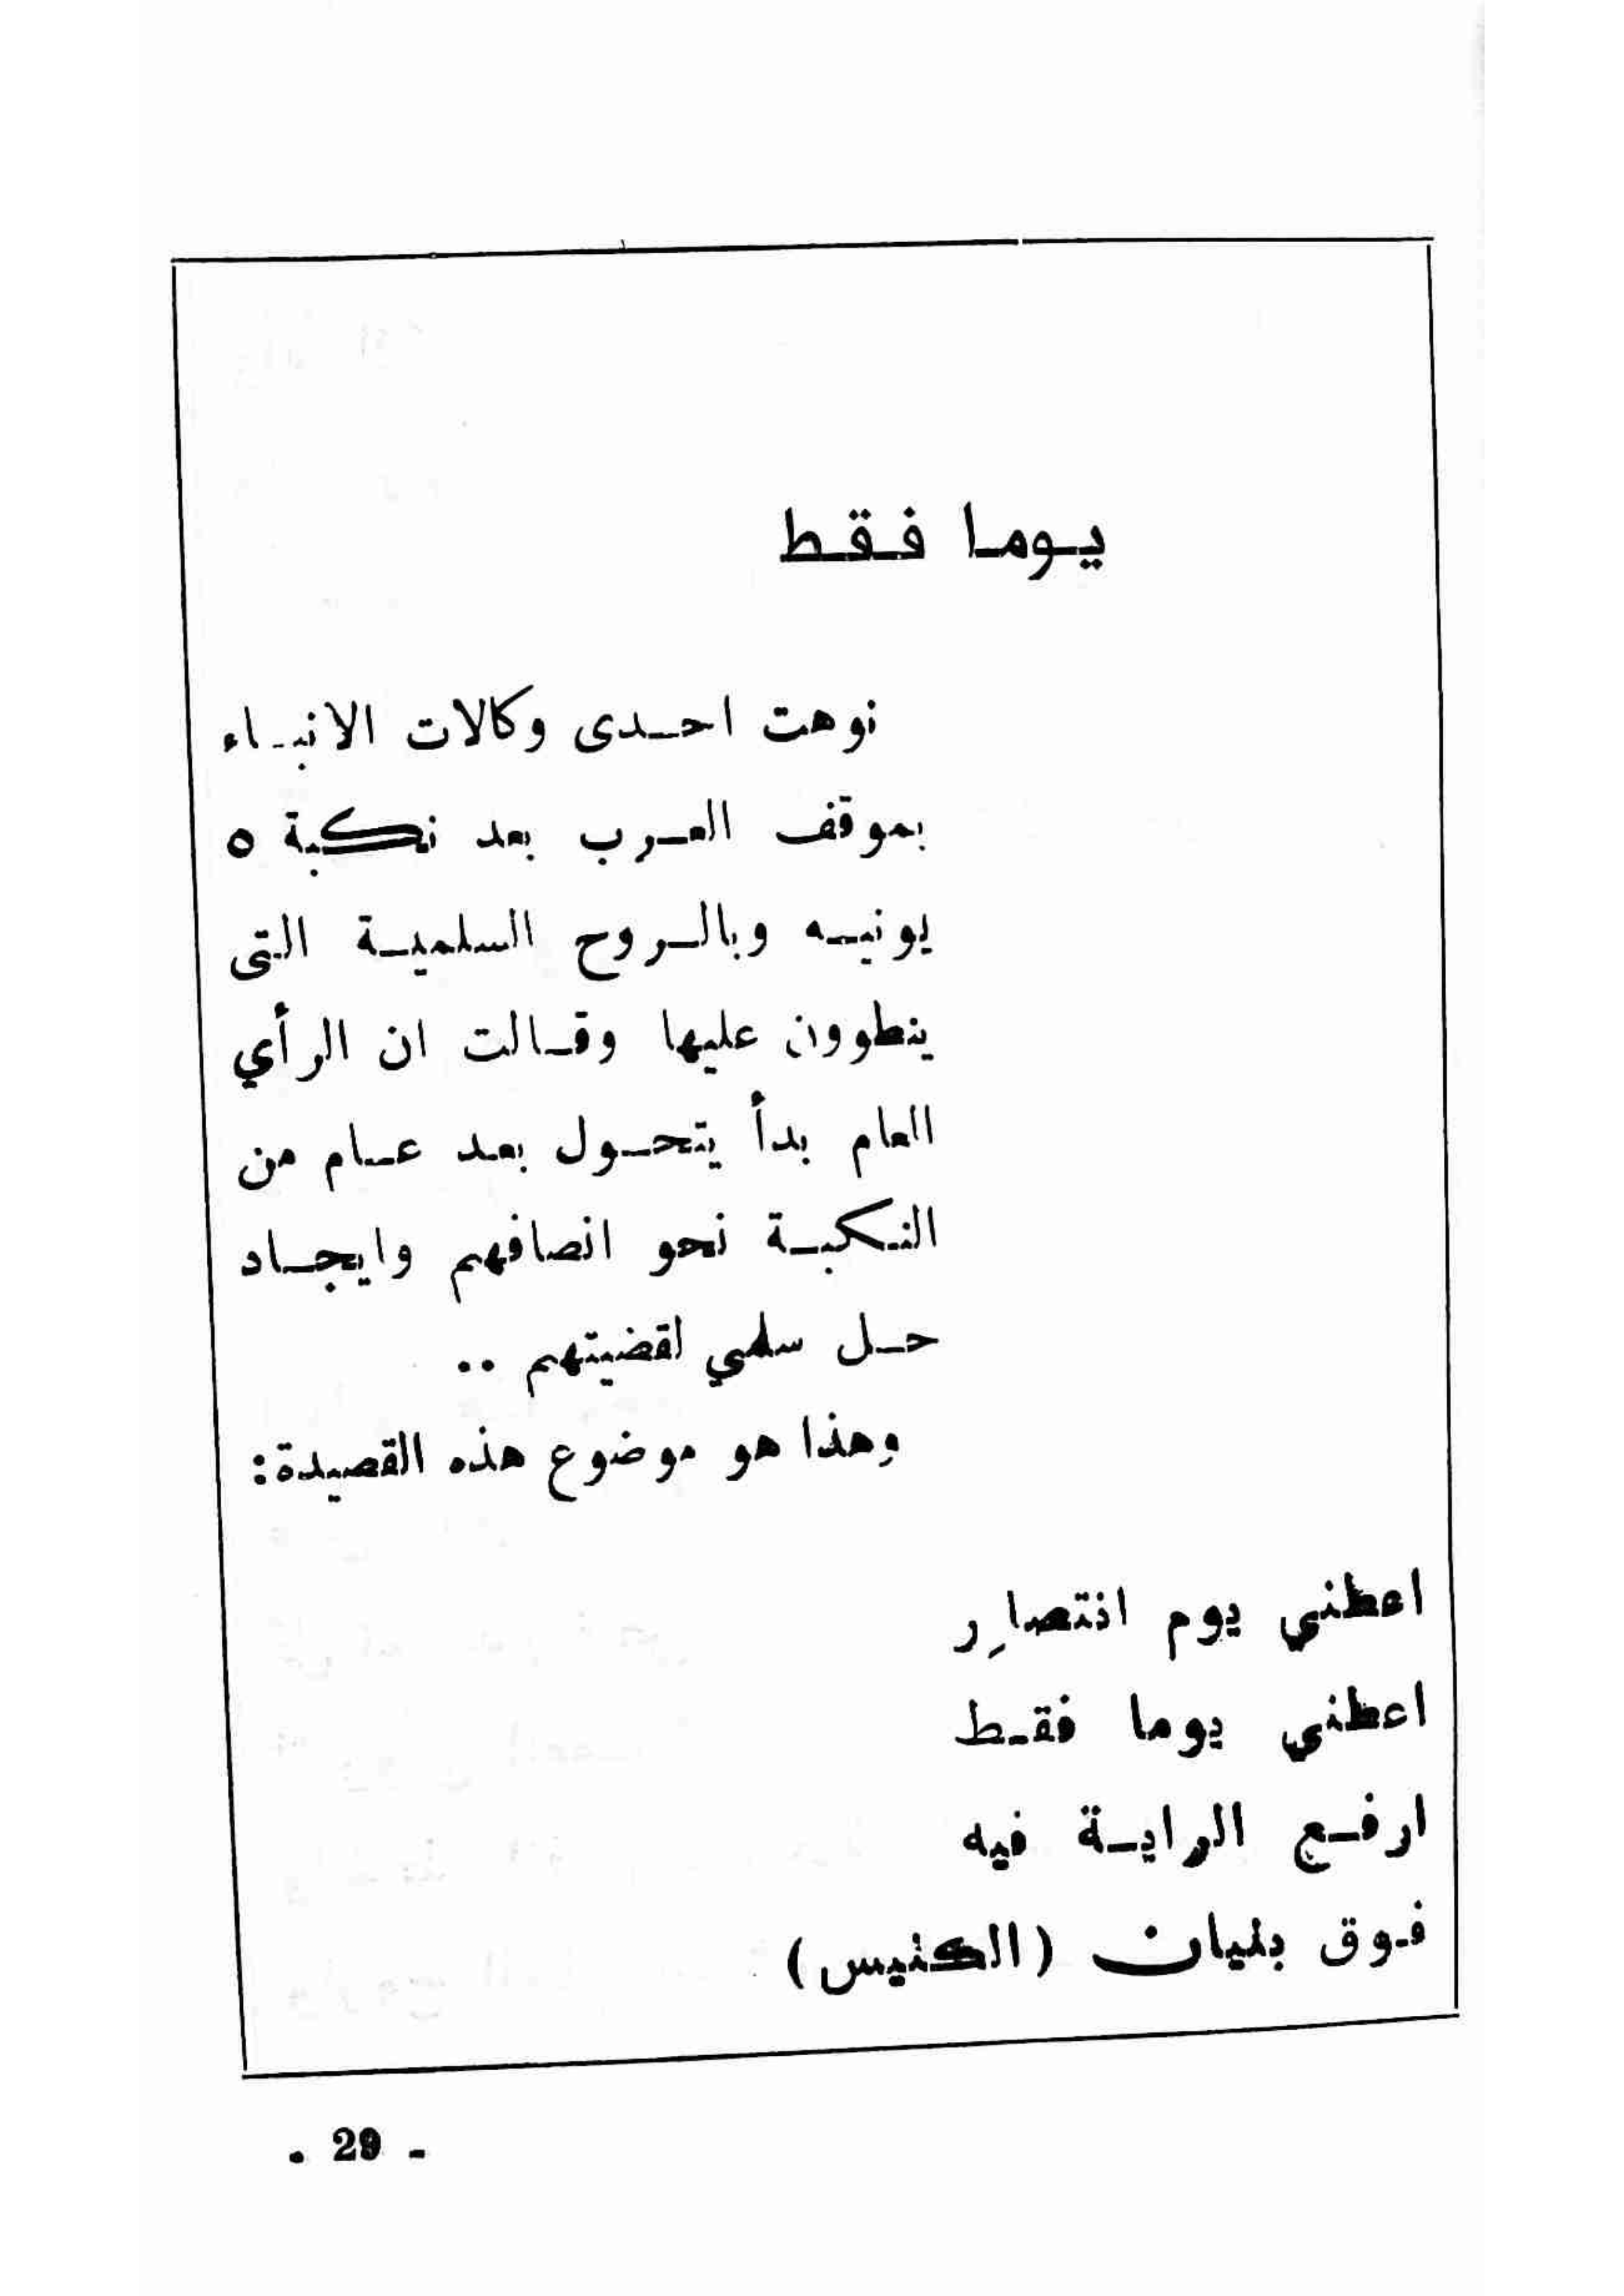 يوما فقط
نوهت احدى وكالات الانباء
بموقف العرب بعد نكبة ٥
يونيه وبالروح السلمية التى
ينطوون عليها وقالت ان الرأي
العام بدأ يتحول بعد عام من
النكبة نحو انصافهم وايجاد
حل سلمي لقضيتهم ..
وهذا هو موضوع هذه القصيدة:
اعطني يوم انتصارِ
اعطني يوما فقط
ارفع الراية فيه
فوق بنيان (الكنيس)
- 29 .